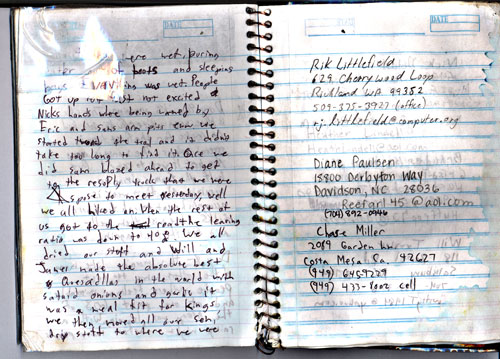 were wet, puring
water out boots and sleeping
bags everything was wet. People
Got up but just not excited
Nicks hands where being warmed by
Eric and Sams arm pits ew we
started the trail and it didn't
take too long to find it. Once we
did Sam blazed ahead to get
to the resoply truck that we were
spose to meet yesterday, well
we all hiked on. When the rest of
us got to the road the learing
ratio was down to 40%. We all
dried our stuff and Will and
Jaker made the absolute best
Quesadillas in the world with
sataid onions and garlic it
was a meal fit for kings,
we then moved all our semi
dry stuff to where we were
DATE
DATE
Rik Littlefield
629 Cherrywood Loop
Richland WA 99352
509-375-3927 (office)
r.j.littlefield@computer.org
Diane Paulsen
18800 Derbyton Way
Davidson, NC 28036
Reefgrl45@aol.com
(704) 892-0946
Chase Miller
2089 Garden Ln
Costa Mesa, Ca, 92627
(949) 6459229
(949) 433-8002 cell